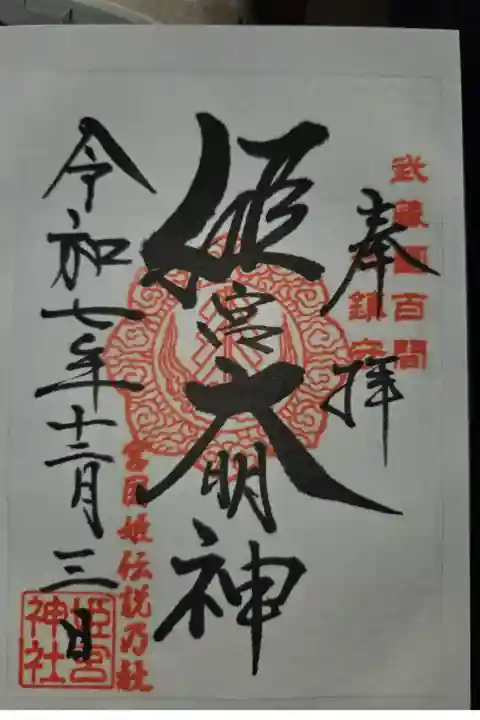 武蔵國百間
鎮守
奉拝
姫宮大明神
宮目姫伝説乃社
令和七年十二月三日
姫宮
神社